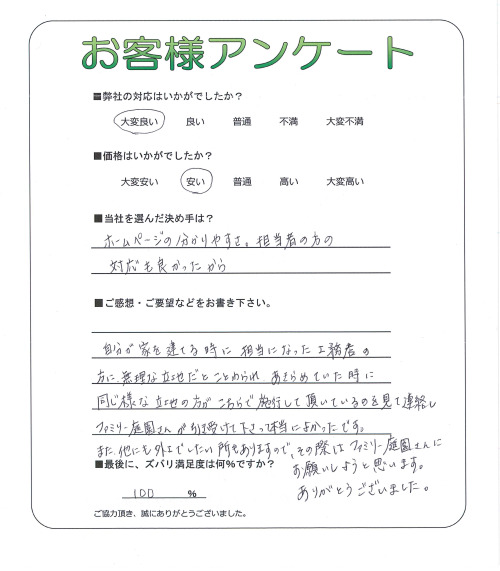 お客様アンケート
■弊社の対応はいかがでしたか?
大変良い 良い 普通 不満 大変不満
■価格はいかがでしたか?
大変安い 安い 普通 高い 大変高い
■当社を選んだ決め手は?
ホームページの分かりやすさ。担当者の方の
対応も良かったから
■ご感想・ご要望などをお書き下さい。
自分が家を建てる時に担当になった工務店の
方に、無理な立地だとことわられ あきらめていた時に
同じ様な立地の方がこちらで施行して頂いているのを見て連絡し
ファミリー庭園さんが引き受けて下さって本当によかったです。
また、他にも外工でしたい所もありますので、その際はファミリー庭園さんに
お願いしようと思います。
ありがとうございました。
■最後に、ズバリ満足度は何%ですか?
100 %
ご協力頂き、誠にありがとうございました。